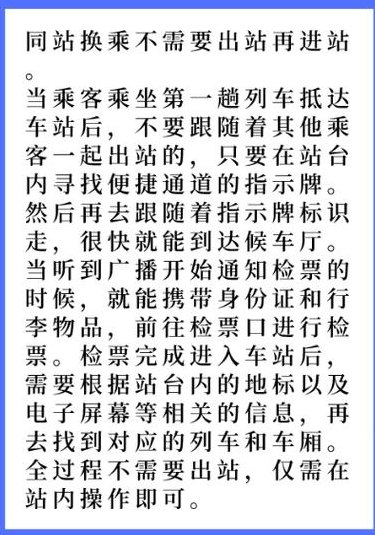 同站换乘不需要出站再进站
。
当乘客乘坐第一趟列车抵达
车站后，不要跟随着其他乘
客一起出站的，只要在站台
内寻找便捷通道的指示牌。
然后再去跟随着指示牌标识
走，很快就能到达候车厅。
当听到广播开始通知检票的
时候，就能携带身份证和行
李物品，前往检票口进行检
票。检票完成进入车站后，
需要根据站台内的地标以及
电子屏幕等相关的信息，再
去找到对应的列车和车厢。
全过程不需要出站，仅需在
站内操作即可。